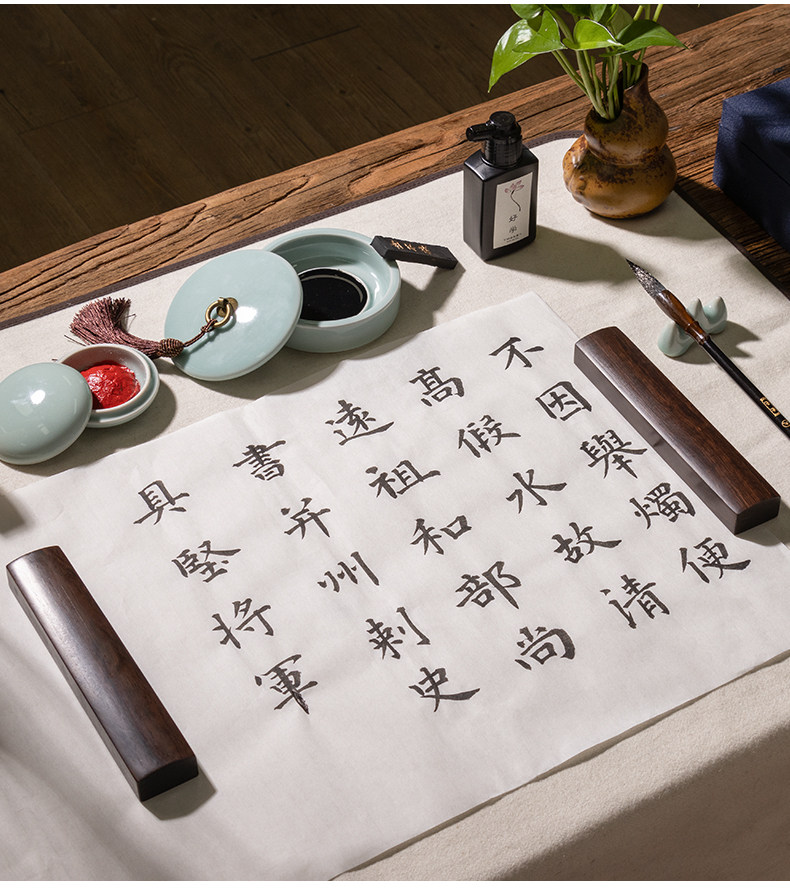 不因舉燭便
高假水故清
遠祖和部尚
書并州刺史
具堅將軍
好